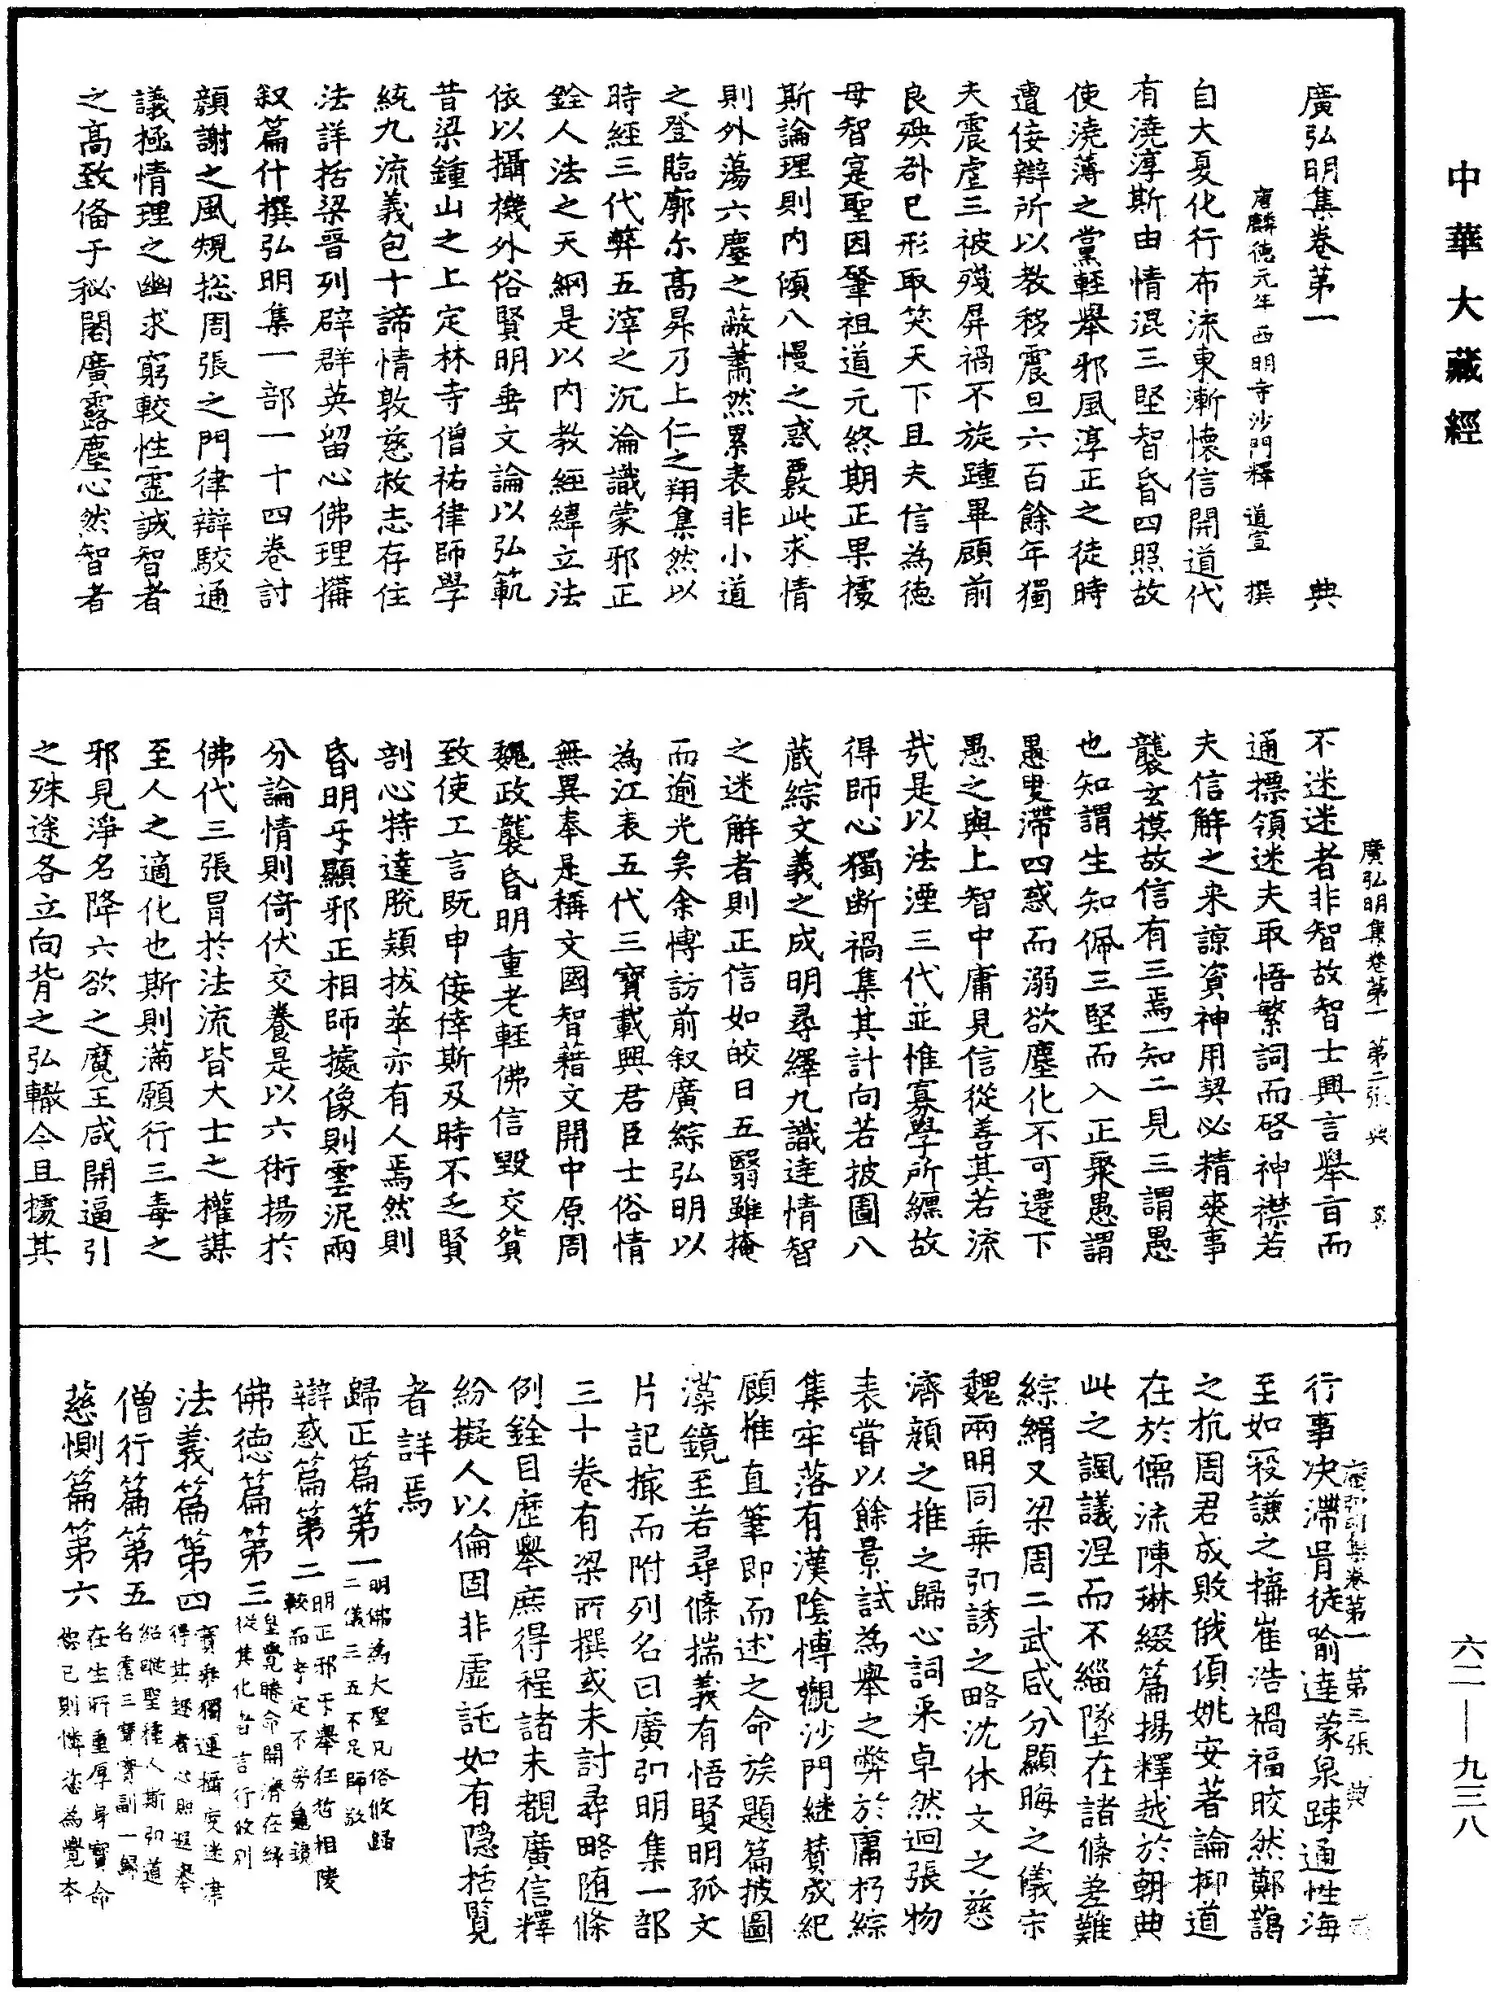 中華大藏經
廣弘明集卷第一　典
唐麟德元年西明寺沙門釋道宣　撰
自大夏化行布流東漸懷信開道代
有澆淳斯由情混三堅智昏四照故
使澆薄之黨輕舉邪風淳正之徒時
遭佞辯所以教移震旦六百餘年獨
夫震虐三被殘屏禍不旋踵畢顧前
良殃咎已形取笑天下且夫信為德
母智寔聖因肇祖道元終期正果據
斯論理則內傾八慢之惑覈此求情
則外蕩六塵之蔽蕭然累表非小道
之登臨廓尒高昇乃上仁之翔集然以
時經三代弊五滓之沉淪識蒙邪正
銓人法之天網是以內教經緯立法
依以攝機外俗賢明垂文論以弘範
昔梁鍾山之上定林寺僧祐律師學
統九流義包十諦情敦慈救志存住
法詳括梁晉列辟群英留心佛理搆
叙篇什撰弘明集一部一十四卷討
顏謝之風規揔周張之門律辯駮通
議極情理之幽求窮較性靈誠智者
之高致俻于秘閣廣露塵心然智者
廣弘明集卷第一　第二張　典
不迷迷者非智故智士興言舉旨而
通標領迷夫取悟繁詞而啓神襟若
夫信解之来諒資神用契必精爽事
襲玄模故信有三焉一知二見三謂愚
也知謂生知佩三堅而入正聚愚謂
愚叟滯四惑而溺欲塵化不可遷下
愚之與上智中庸見信從善其若流
㦲是以法湮三代並惟寡學所纏故
得師心獨断禍集其計向若披圖八
藏綜文義之成明尋繹九識達情智
之迷解者則正信如皎日五翳雖掩
而逾光矣余博訪前叙廣綜弘明以
為江表五代三寶載興君臣士俗情
無異奉是稱文國智藉文開中原周
魏政襲昏明重老輕佛信毀交貿
致使工言既申佞倖斯及時不乏賢
剖心特達脫穎拔萃亦有人焉然則
昏明㸦顯邪正相師據像則雲泥兩
分論情則倚伏交養是以六術揚於
佛代三張冒於法流皆大士之權謀
至人之適化也斯則滿願行三毒之
邪見淨名降六欲之魔王咸開逼引
之殊途各立向背之弘轍今且據其
廣弘明集卷第一　第三張　典
行事决滯胥徒喻達蒙泉踈通性海
至如寇謙之搆崔浩禍福皎然鄭藹
之抗周君成敗俄頃姚安著論抑道
在於儒流陳琳綴篇揚釋越於朝典
此之諷議涅而不緇墜在諸條差難
綜緝又梁周二武咸分顯晦之儀宋
魏兩明同乗弘誘之略沈休文之慈
濟顏之推之歸心詞采卓然迥張物
表嘗以餘景試為舉之弊於庸朽綜
集牢落有漢陰博觀沙門継賛成紀
顧惟直筆即而述之命族題篇披圖
藻鏡至若尋條揣義有悟賢明孤文
片記撮而附列名曰廣弘明集一部
三十卷有梁所撰或未討尋略随條
例銓目歴舉庶得程諸未覩廣信釋
紛擬人以倫固非虛託如有隐括覧
者詳焉
歸正篇第一 明佛為大聖凡俗攸歸二儀三五不足師敬
辯惑篇第二 明正邪㸦舉狂哲相陵較而考定不勞龜鏡
佛德篇第三 皇覺睠命開濟在緣從其化者言行攸別
法義篇第四 寳乗獨運攝度迷津得其趣者心照遐舉
僧行篇第五 紹蹤聖種人斯弘道名霑三寶實副一歸
慈惻篇第六 在生所重厚身寶命恕已則憐恣為覺本
六二—九三八